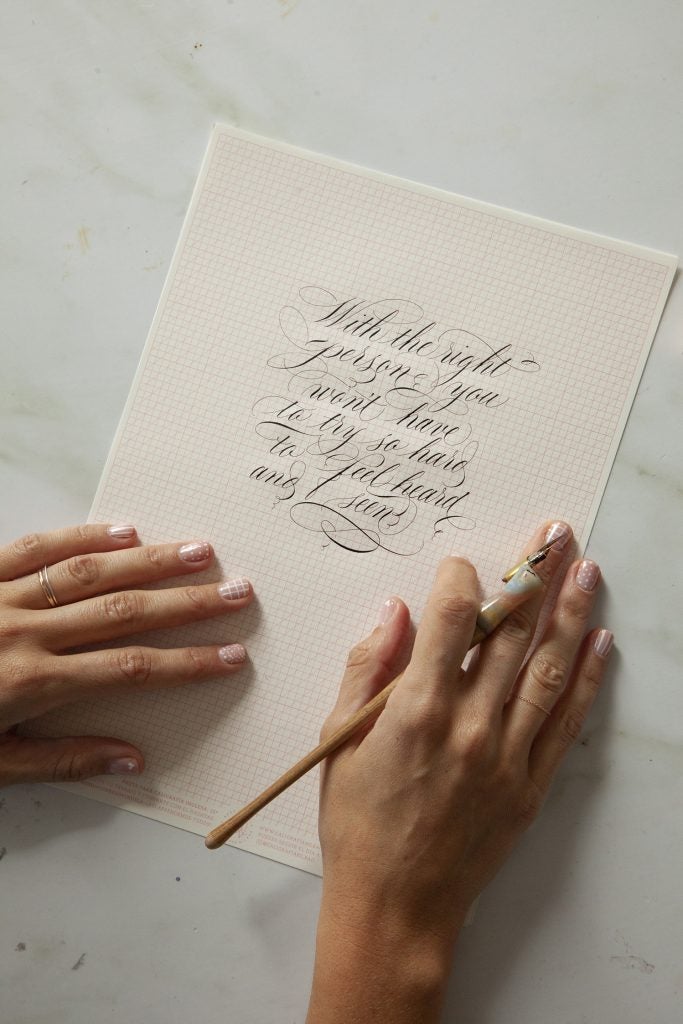 With the right
person, you
won't have
to try so hard
to feel heard
and seen.